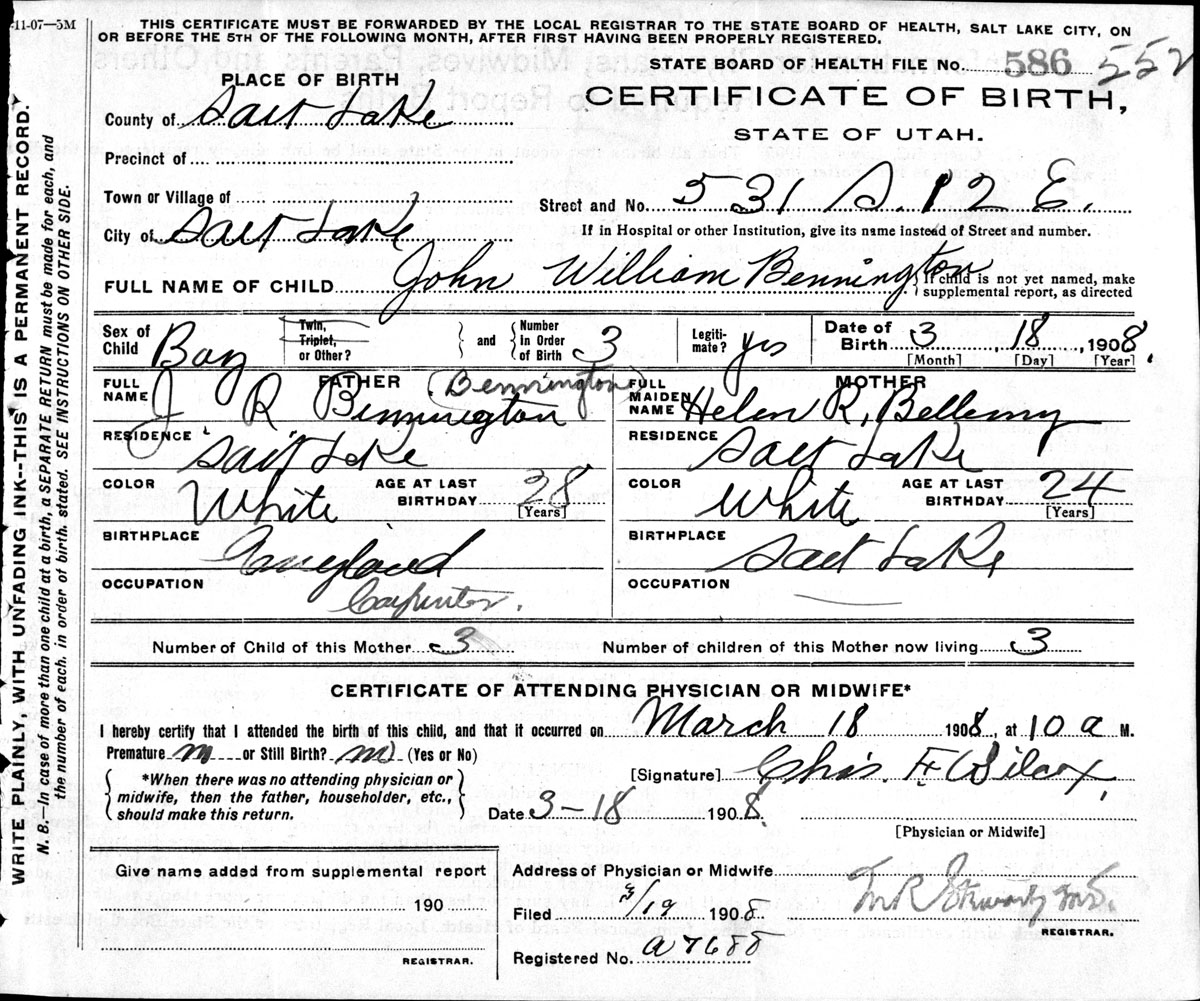 11-07—5M
THIS CERTIFICATE MUST BE FORWARDED BY THE LOCAL REGISTRAR TO THE STATE BOARD OF HEALTH, SALT LAKE CITY, ON
OR BEFORE THE 5TH OF THE FOLLOWING MONTH, AFTER FIRST HAVING BEEN PROPERLY REGISTERED.
WRITE PLAINLY, WITH UNFADING INK--THIS IS A PERMANENT RECORD.
N. B.—In case of more than one child at a birth, a SEPARATE RETURN must be made for each, and
the number of each, in order of birth, stated. SEE INSTRUCTIONS ON OTHER SIDE.
STATE BOARD OF HEALTH FILE No. 586 552
CERTIFICATE OF BIRTH,
STATE OF UTAH.
PLACE OF BIRTH
County of Salt Lake
Precinct of
Town or Village of
City of Salt Lake
Street and No. 531 S. 12 E.
If in Hospital or other Institution, give its name instead of Street and number.
FULL NAME OF CHILD John William Bennington { If child is not yet named, make
supplemental report, as directed
Sex of Child Boy
Twin, Triplet, or Other?
and Number In Order of Birth 3
Legitimate? yes
Date of Birth 3, 18, 1908.
[Month] [Day] [Year]
FATHER
FULL NAME J R Bennington (Bennington)
RESIDENCE Salt Lake
COLOR White AGE AT LAST BIRTHDAY 28 [Years]
BIRTHPLACE England
OCCUPATION Carpenter.
MOTHER
FULL MAIDEN NAME Helen R. Bellemy
RESIDENCE Salt Lake
COLOR White AGE AT LAST BIRTHDAY 24 [Years]
BIRTHPLACE Salt Lake
OCCUPATION —
Number of Child of this Mother 3 Number of children of this Mother now living 3
CERTIFICATE OF ATTENDING PHYSICIAN OR MIDWIFE*
I hereby certify that I attended the birth of this child, and that it occurred on March 18 1908, at 10 a M.
Premature or Still Birth? (Yes or No)
{ *When there was no attending physician or
midwife, then the father, householder, etc.,
should make this return. }
[Signature] Chas. F. Wilcox,
Date 3-18 1908.
[Physician or Midwife]
Give name added from supplemental report
190
REGISTRAR.
Address of Physician or Midwife
Filed 3/19 1908
REGISTRAR.
Registered No. a7688